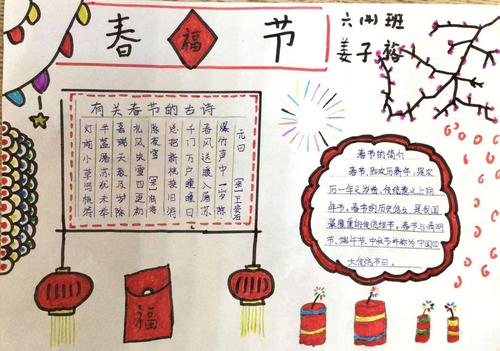 春 福 节
六(四)班
姜子
有关春节的古诗
元日 [宋]王安石
爆竹声中一岁除
春风送暖入屠苏
千门万户曈曈日
总把新桃换旧符
除夜雪 [宋]陆游
北风吹雪四更初
嘉瑞天教及岁除
半盏屠苏犹未举
灯前小草写桃符
春节的简介
春节,即农历新年,是农
历一年之岁首,传统意义上的
年节。春节的历史悠久,是我国
最隆重的传统佳节。春节与清明
节、端午节、中秋节并称为中国四
大传统节日。
福